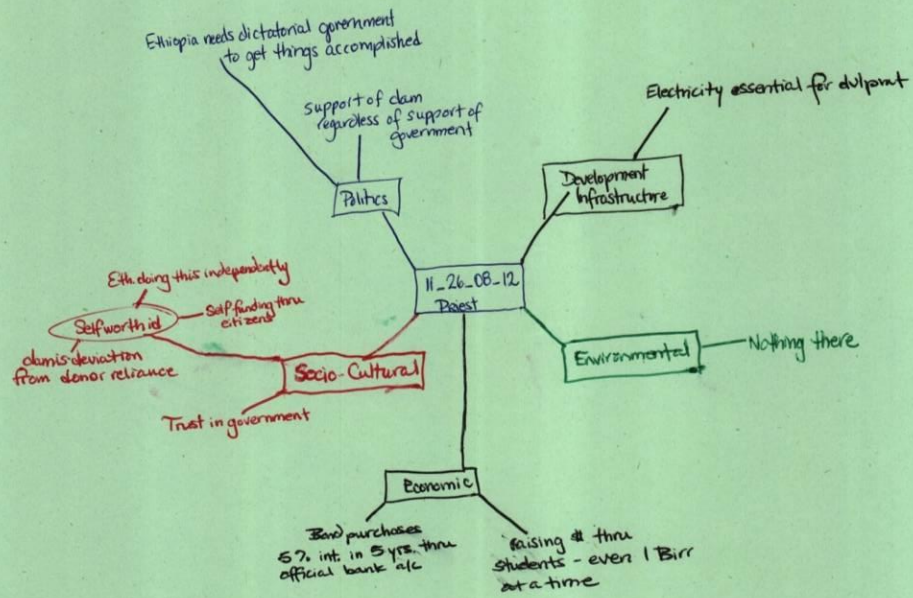 Ethiopia needs dictatorial government
to get things accomplished
support of dam
regardless of support of
government
Politics
Electricity essential for dvlpmnt
Development
Infrastructure
11_26_08_12
Priest
Eth. doing this independently
Selfworth id
Self funding thru
citizens
dam is deviation
from donor reliance
Socio-Cultural
Trust in government
Environmental
Nothing there
Economic
Bond purchases
5% int. in 5 yrs. thru
official bank a/c
raising $ thru
students - even 1 Birr
at a time